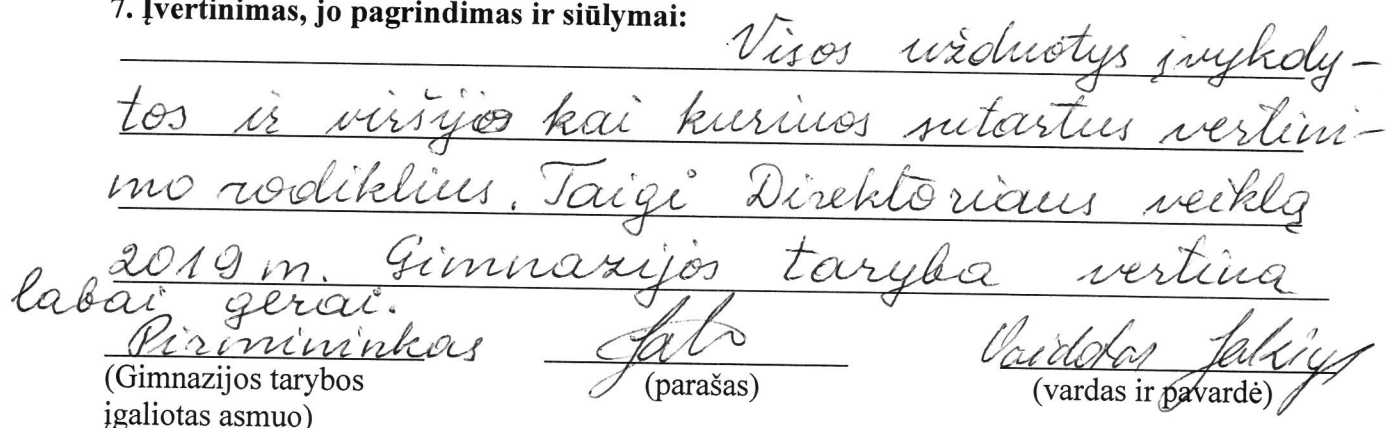 7. Įvertinimas, jo pagrindimas ir siūlymai:
Visos užduotys įvykdy-
tos ir viršijos kai kuriuos sutartus vertini-
mo rodiklius. Taigi Direktoriaus veiklą
2019 m. Gimnazijos taryba vertina
labai gerai.
Pirmininkas
(Gimnazijos tarybos (parašas) (vardas ir pavardė)
įgaliotas asmuo)